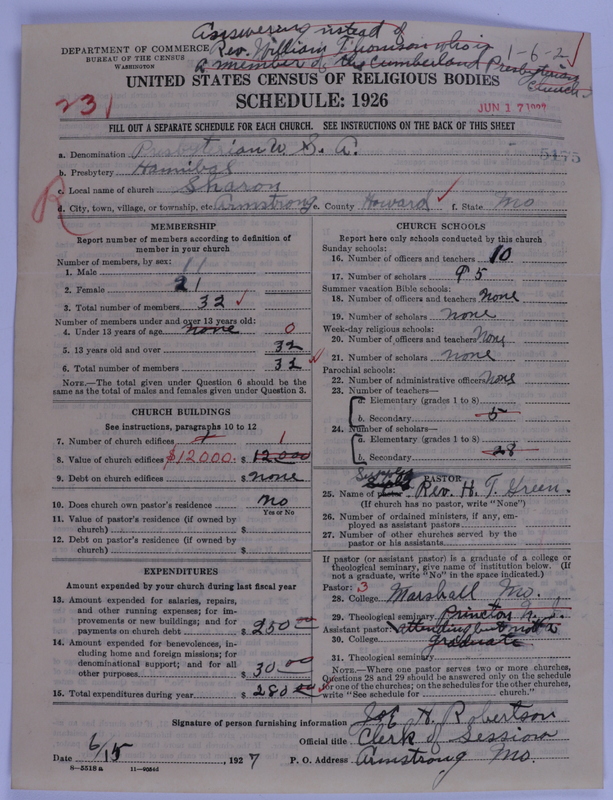 Answering instead of
Rev. William Thomson who is
a member of the Cumberland Presbyterian Church
1-6-2
DEPARTMENT OF COMMERCE
BUREAU OF THE CENSUS
WASHINGTON
UNITED STATES CENSUS OF RELIGIOUS BODIES
SCHEDULE: 1926
231
JUN 17 1927
FILL OUT A SEPARATE SCHEDULE FOR EACH CHURCH. SEE INSTRUCTIONS ON THE BACK OF THIS SHEET
a. Denomination Presbyterian U. S. A.
5175
b. Presbytery Hannibal
c. Local name of church Sharon
d. City, town, village, or township, etc. Armstrong e. County Howard f. State Mo
MEMBERSHIP
Report number of members according to definition of
member in your church
Number of members, by sex:
1. Male 11
2. Female 21
3. Total number of members 32
Number of members under and over 13 years old:
4. Under 13 years of age none 0
5. 13 years old and over 32
6. Total number of members 32
NOTE.—The total given under Question 6 should be the
same as the total of males and females given under Question 3.
CHURCH BUILDINGS
See instructions, paragraphs 10 to 12
7. Number of church edifices 1 1
8. Value of church edifices $12000. $ 12,000
9. Debt on church edifices $ none
10. Does church own pastor's residence No
Yes or No
11. Value of pastor's residence (if owned by
church) $
12. Debt on pastor's residence (if owned by
church) $
EXPENDITURES
Amount expended by your church during last fiscal year
13. Amount expended for salaries, repairs,
and other running expenses; for im-
provements or new buildings; and for
payments on church debt $ 250 00
14. Amount expended for benevolences, in-
cluding home and foreign missions; for
denominational support; and for all
other purposes $ 30 00
15. Total expenditures during year $ 280 00
CHURCH SCHOOLS
Report here only schools conducted by this church
Sunday schools:
16. Number of officers and teachers 10
17. Number of scholars 95
Summer vacation Bible schools:
18. Number of officers and teachers None
19. Number of scholars none
Week-day religious schools:
20. Number of officers and teachers None
21. Number of scholars none
Parochial schools:
22. Number of administrative officers None
23. Number of teachers—
a. Elementary (grades 1 to 8)
b. Secondary 5
24. Number of scholars—
a. Elementary (grades 1 to 8)
b. Secondary 28
Supply
PASTOR
25. Name of pastor Rev. H. T. Green.
(If church has no pastor, write "None")
26. Number of ordained ministers, if any, em-
ployed as assistant pastors
27. Number of other churches served by the
pastor or his assistants
If pastor (or assistant pastor) is a graduate of a college or
theological seminary, give name of institution below. (If
not a graduate, write "No" in the space indicated.)
Pastor: 3
28. College Marshall Mo.
29. Theological seminary Princton N. J.
Assistant pastor: attending but not a
30. College graduate
31. Theological seminary
NOTE.—Where one pastor serves two or more churches,
Questions 28 and 29 should be answered only on the schedule
for one of the churches; on the schedules for the other churches,
write "See schedule for church."
Signature of person furnishing information Joe H. Robertson
Official title Clerk of Session
Date 6/15, 1927 P. O. Address Armstrong Mo.
8—5518 a 11—9054d